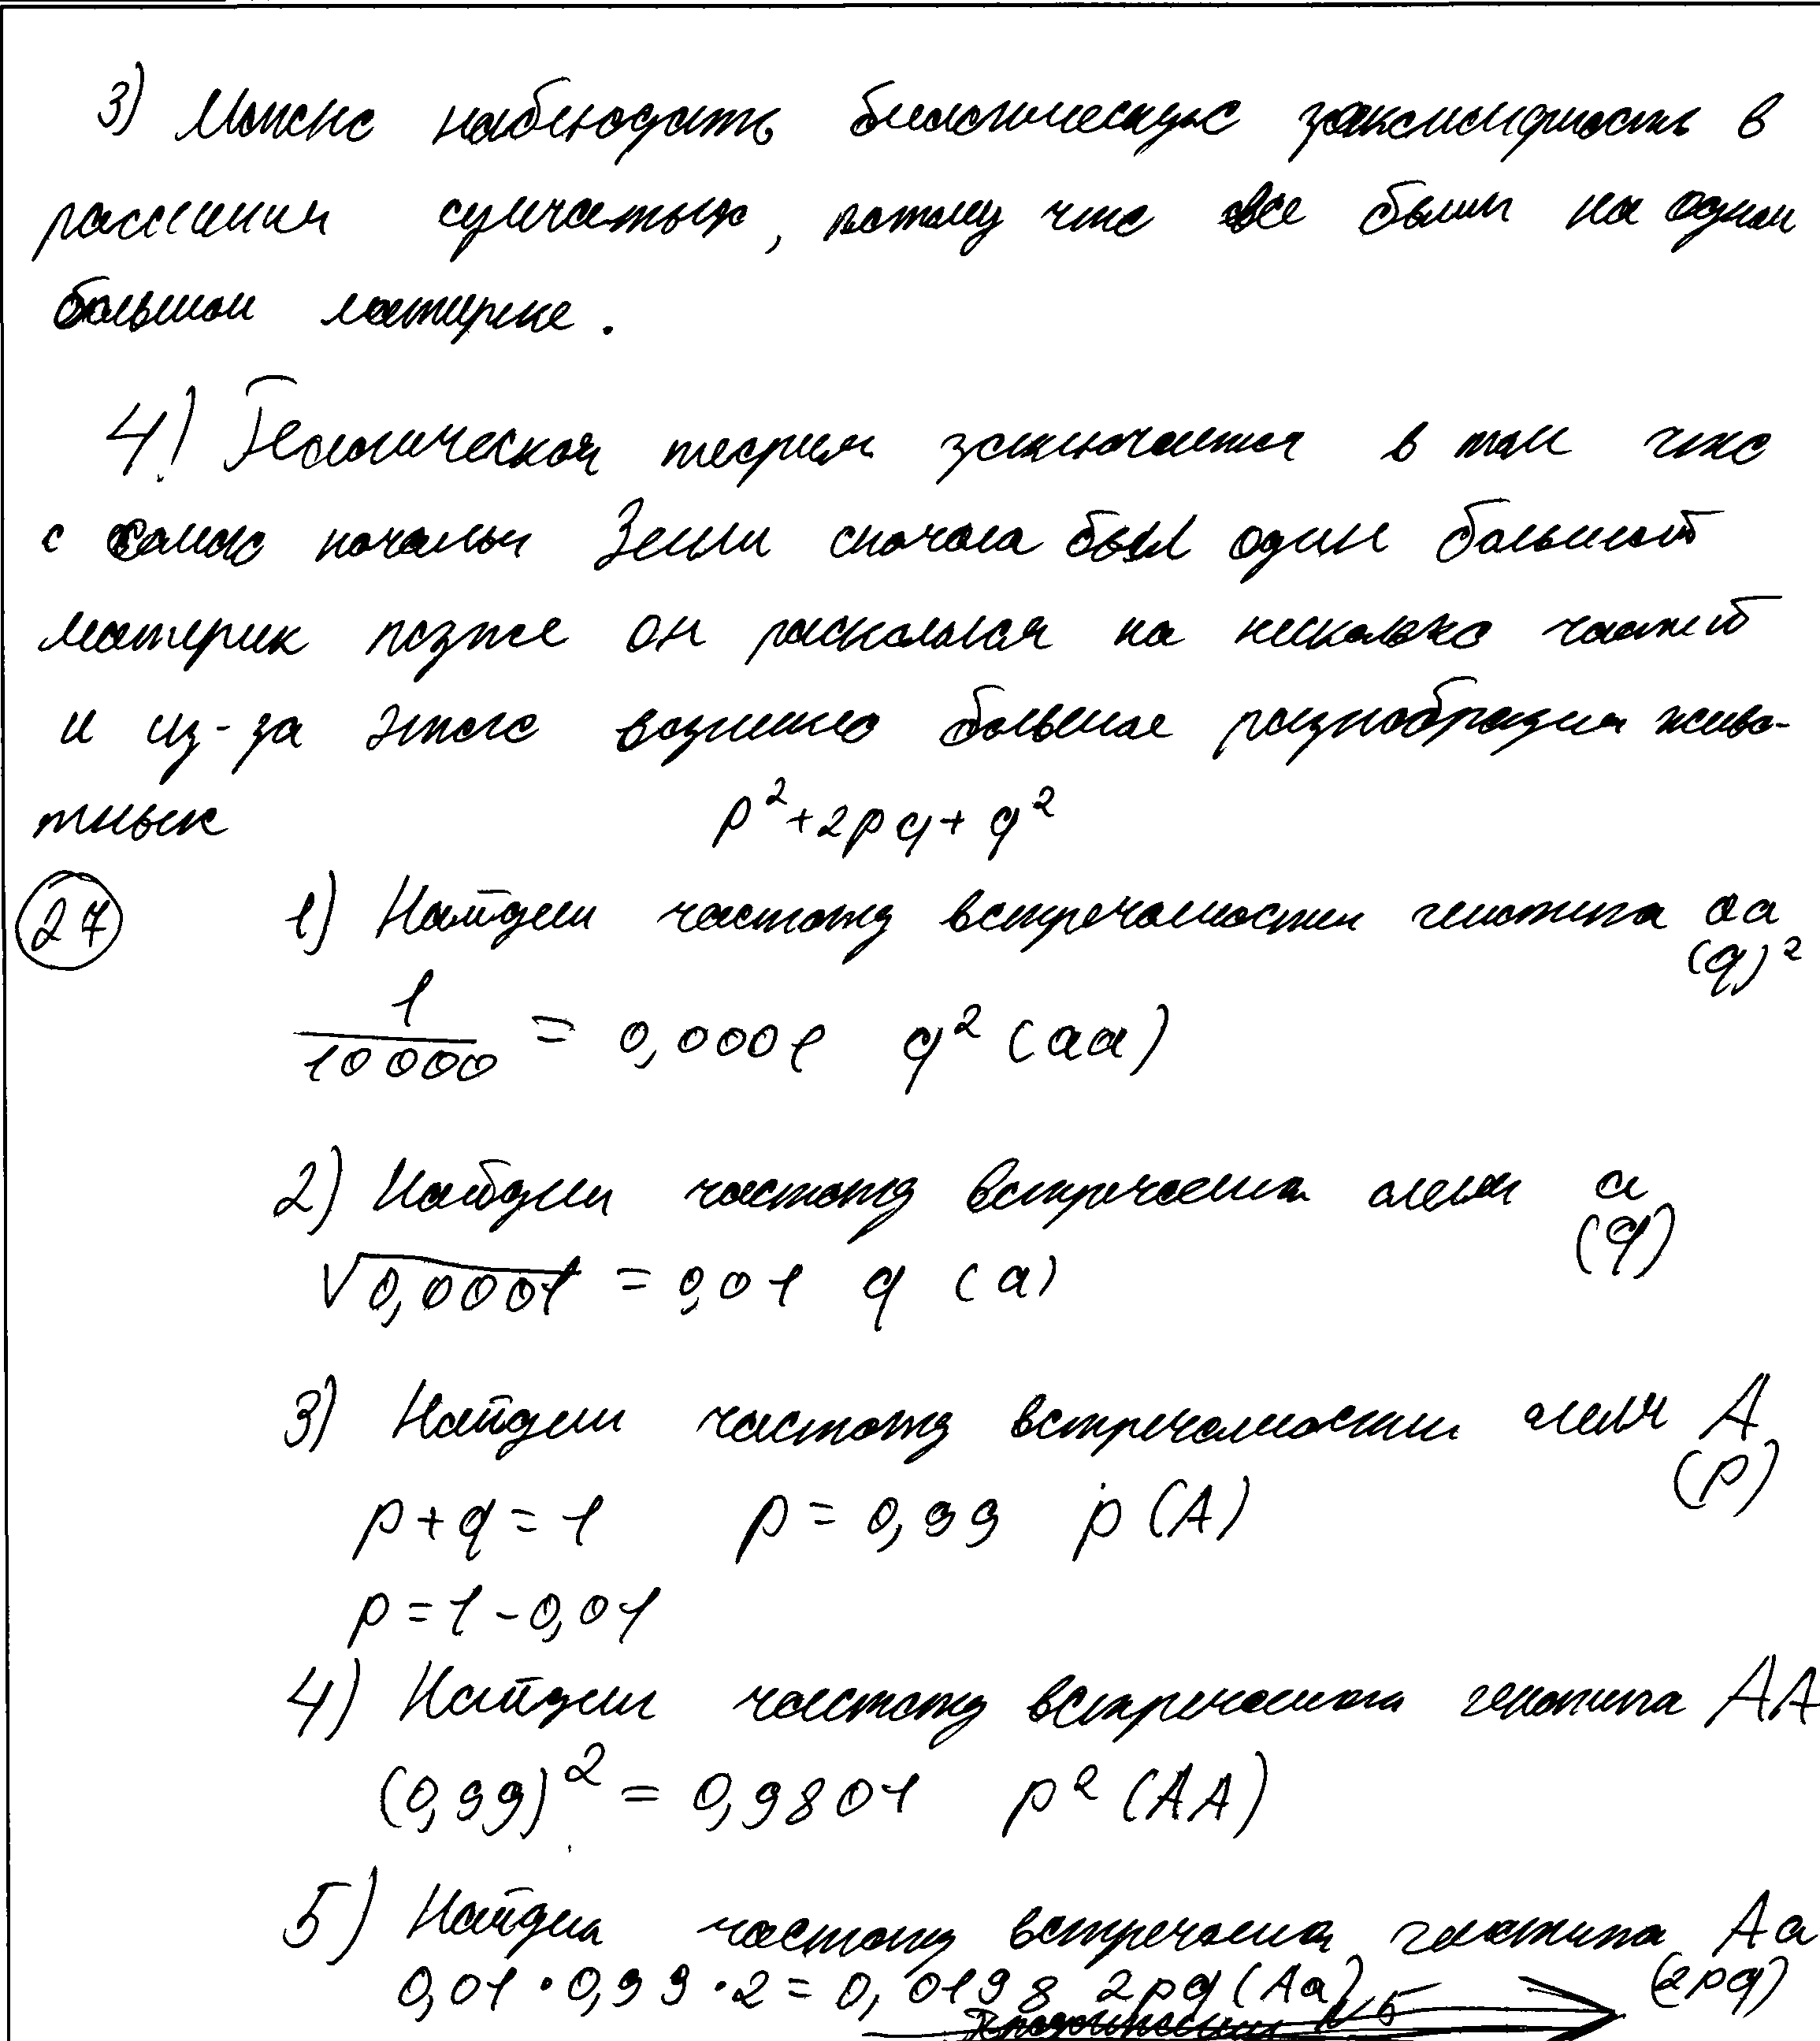 3) Можно наблюдать биологическую закономерность в
расселении сумчатых, потому что все были на одном
большом материке.
4) Геологическая теория заключается в том что
с само начальи Земли сночала был один большой
материк позже он раскололся на несколько частей
и из-за этого возникло большое разнобразия живо-
тных
p² + 2pq + q²
27
1) Найдем частоту встречаемости генотипа aa
(q)²
1/10000 = 0,0001 q² (aa)
2) Найдем частоту встречаемти алеля a
(q)
√0,0001 = 0,01 q (a)
3) Найдем частоту встречаемости алеля A
(p)
p + q = 1 p = 0,99 p (A)
p = 1 - 0,01
4) Найдем частоту встречаемти генотипа AA
(0,99)² = 0,9801 p² (AA)
5) Найдем частоту встречаемти генотипа Aa
0,01 · 0,99 · 2 = 0,0198 2pq (Aa) (2pq)